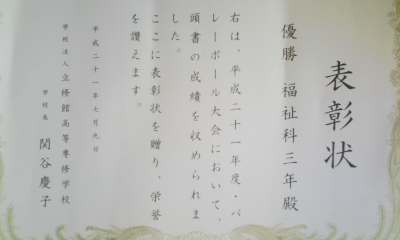 表彰状
優勝 福祉科三年殿
右は、平成二十一年度・バ
レーボール大会において、
頭書の成績を収められま
した。
ここに表彰状を贈り、栄誉
を讃えます。
平成二十一年七月九日
学校法人立修館高等専修学校
学校長 関谷慶子